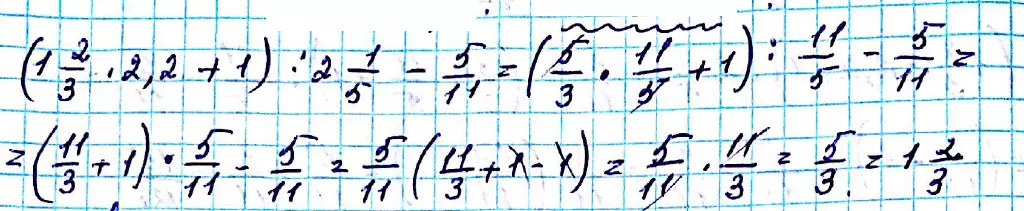 (1 2/3 · 2,2 + 1) : 2 1/5 - 5/11 = (5/3 · 11/5 + 1) : 11/5 - 5/11 =
= (11/3 + 1) · 5/11 - 5/11 = 5/11 (11/3 + 1 - 1) = 5/11 · 11/3 = 5/3 = 1 2/3